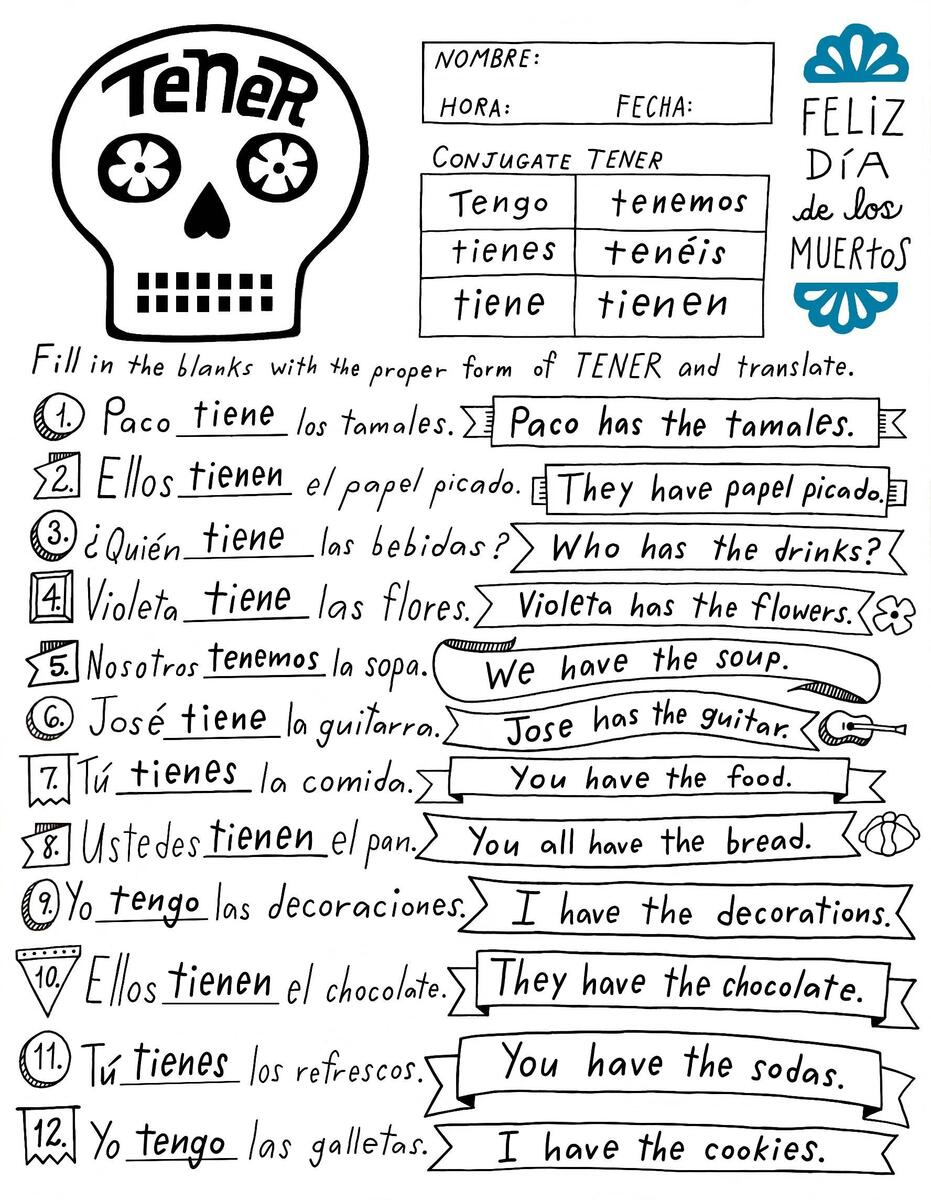 TENER
NOMBRE:
HORA: FECHA:
CONJUGATE TENER
Tengo tenemos
tienes tenéis
tiene tienen
FELIZ
DÍA
de los
MUERTOS
Fill in the blanks with the proper form of TENER and translate.
1. Paco tiene los tamales. Paco has the tamales.
2. Ellos tienen el papel picado. They have papel picado.
3. ¿Quién tiene las bebidas? Who has the drinks?
4. Violeta tiene las flores. Violeta has the flowers.
5. Nosotros tenemos la sopa. We have the soup.
6. José tiene la guitarra. Jose has the guitar.
7. Tú tienes la comida. You have the food.
8. Ustedes tienen el pan. You all have the bread.
9. Yo tengo las decoraciones. I have the decorations.
10. Ellos tienen el chocolate. They have the chocolate.
11. Tú tienes los refrescos. You have the sodas.
12. Yo tengo las galletas. I have the cookies.